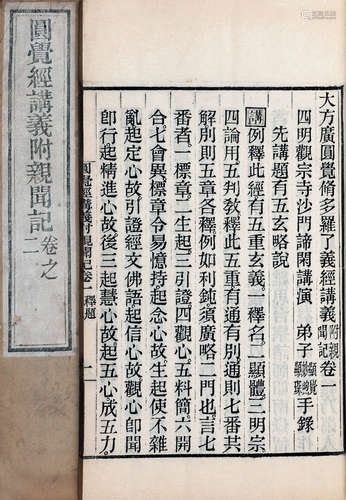 大方廣圓覺脩多羅了義經講義附親聞記卷一
四明觀宗寺沙門諦閑講演 弟子顯覺顯蔭手錄
先講題有五玄略說
講例釋此經有五重玄義。一釋名。二顯體。三明宗。
四論用。五判教。釋此五重有通有別。通則七番共
解。別則五章各釋。例如利鈍。須廣略二門也。言七
番者。一標章。二生起。三引證。四觀心。五料簡。六開
合。七會異。標章令易憶持。起念心故。生起使不雜
亂。起定心故。引證經文佛語。起信心故。觀心即聞
即行。起精進心故。後三起慧心故。起五心。成五力。
圓覺經講義附親聞記卷一 釋題
一
圓覺經講義附親聞記卷之二